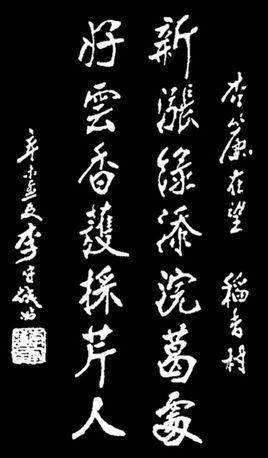 杏簾在望 稻香村
新漲綠添浣葛處
好雲香護採芹人
辛未 李守